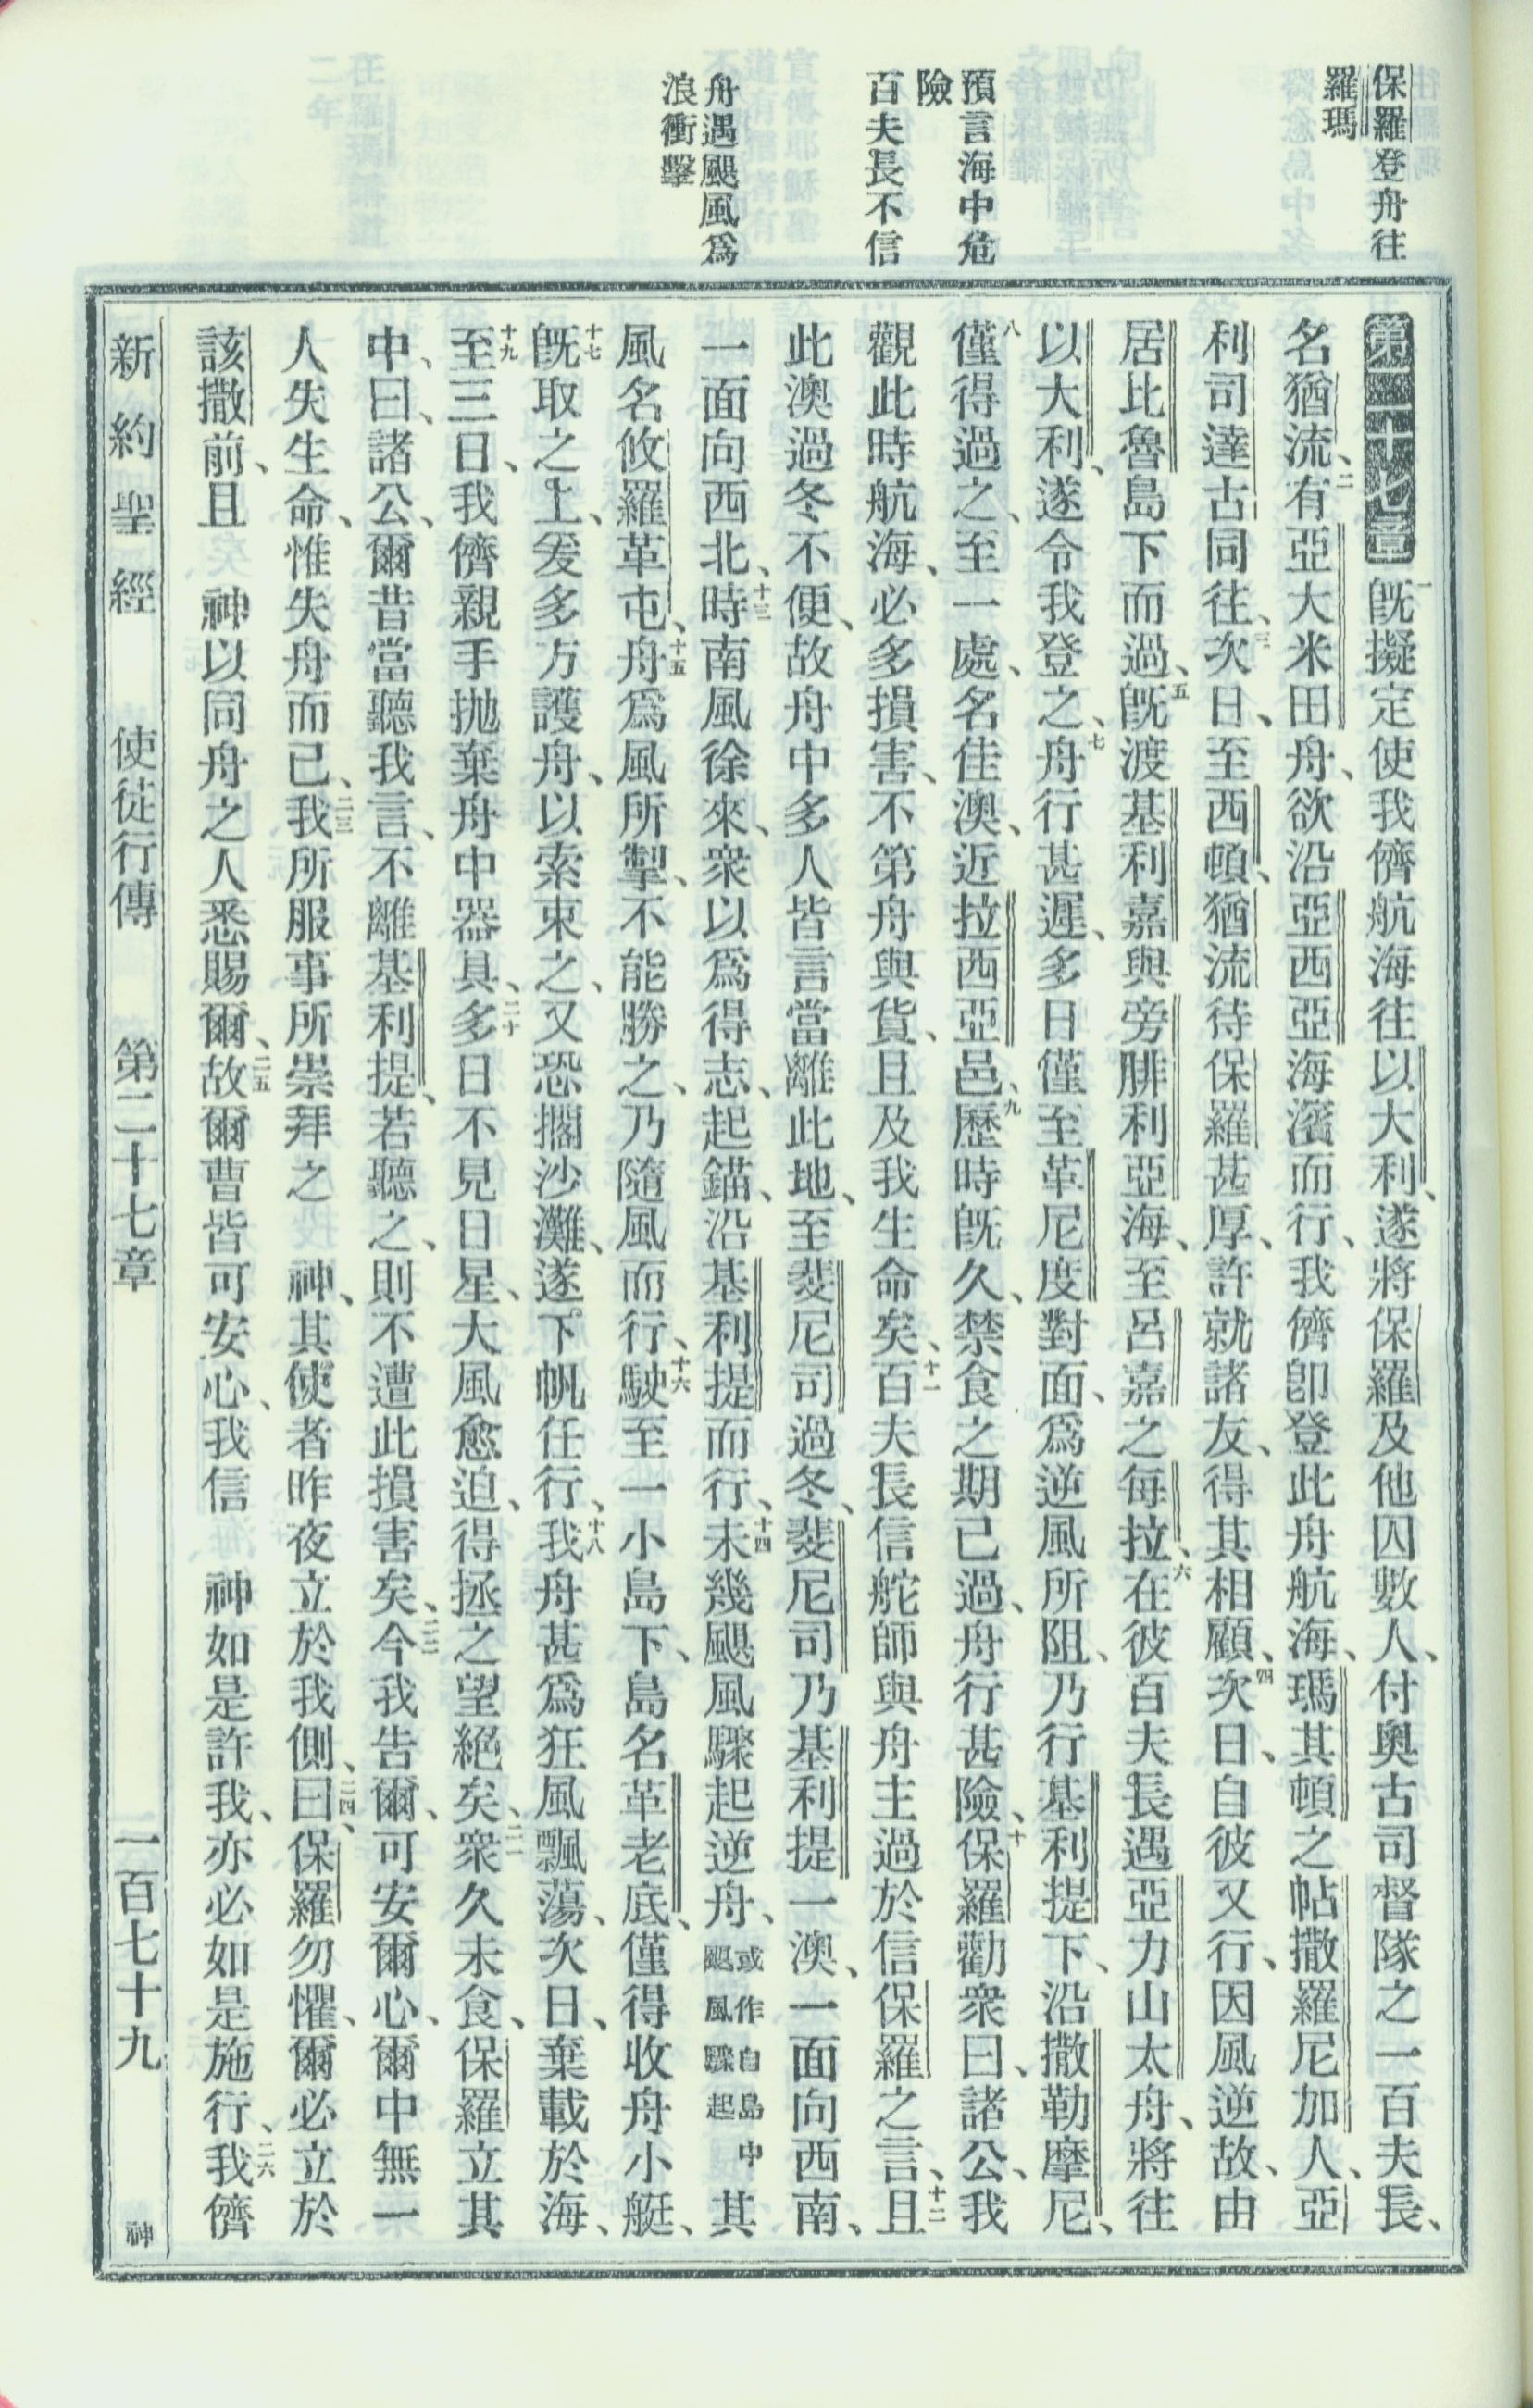 保羅登舟往
羅瑪
預言海中危
險
百夫長不信
舟遇颶風爲
浪衝擊
第二十七章 一既擬定使我儕航海往以大利、遂將保羅及他囚數人、付與古司督隊之一百夫長、
名猶流、二有亞大米田舟、欲沿亞西亞海濱而行、我儕卽登此舟航海、瑪其頓之帖撒羅尼加人、亞
利司達古同往、三次日、至西頓、猶流待保羅甚厚、許就諸友、得其相顧、四次日、自彼又行、因風逆故、由
居比魯島下而過、五旣渡基利嘉與旁腓利亞海、至呂嘉之每拉、六在彼百夫長遇亞力山太舟、將往
以大利、遂令我登之、七舟行甚遲、多日僅至革尼度對面、爲逆風所阻、乃行基利提下、沿撒勒摩尼、
八僅得過之、至一處、名佳澳、近拉西亞邑、九歷時旣久、禁食之期已過、舟行甚險、十保羅勸衆曰、諸公、我
觀此時航海、必多損害、不第舟與貨、且及我生命矣、十一百夫長信舵師與舟主過於信保羅之言、十二且
此澳過冬不便、故舟中多人皆言當離此地、至斐尼司過冬、斐尼司乃基利提一澳、一面向西南、
一面向西北、十三時南風徐來、衆以爲得志、起錨、沿基利提而行、十四未幾颶風驟起逆舟、或作自島中颶風驟起其
風名攸羅革屯、十五舟爲風所掣、不能勝之、乃隨風而行、十六駛至一小島下、島名革老底、僅得收舟小艇、
十七旣取之上、爰多方護舟、以索束之、又恐擱沙灘、遂下帆任行、十八我舟甚爲狂風飄蕩、次日、棄載於海、
十九至三日、我儕親手拋棄舟中器具、二十多日不見日星、大風愈迫、得拯之望絕矣、二一衆久未食、保羅立其
中、曰、諸公、爾昔當聽我言、不離基利提、若聽之、則不遭此損害矣、二二今我告爾、可安爾心、爾中無一
人失生命、惟失舟而已、二三我所服事所崇拜之 神、其使者昨夜立於我側、二四曰、保羅勿懼、爾必立於
該撒前、且 神以同舟之人悉賜爾、二五故爾曹皆可安心、我信 神如是許我、亦必如是施行、二六我儕
新約聖經 使徒行傳 第二十七章 一百七十九 神